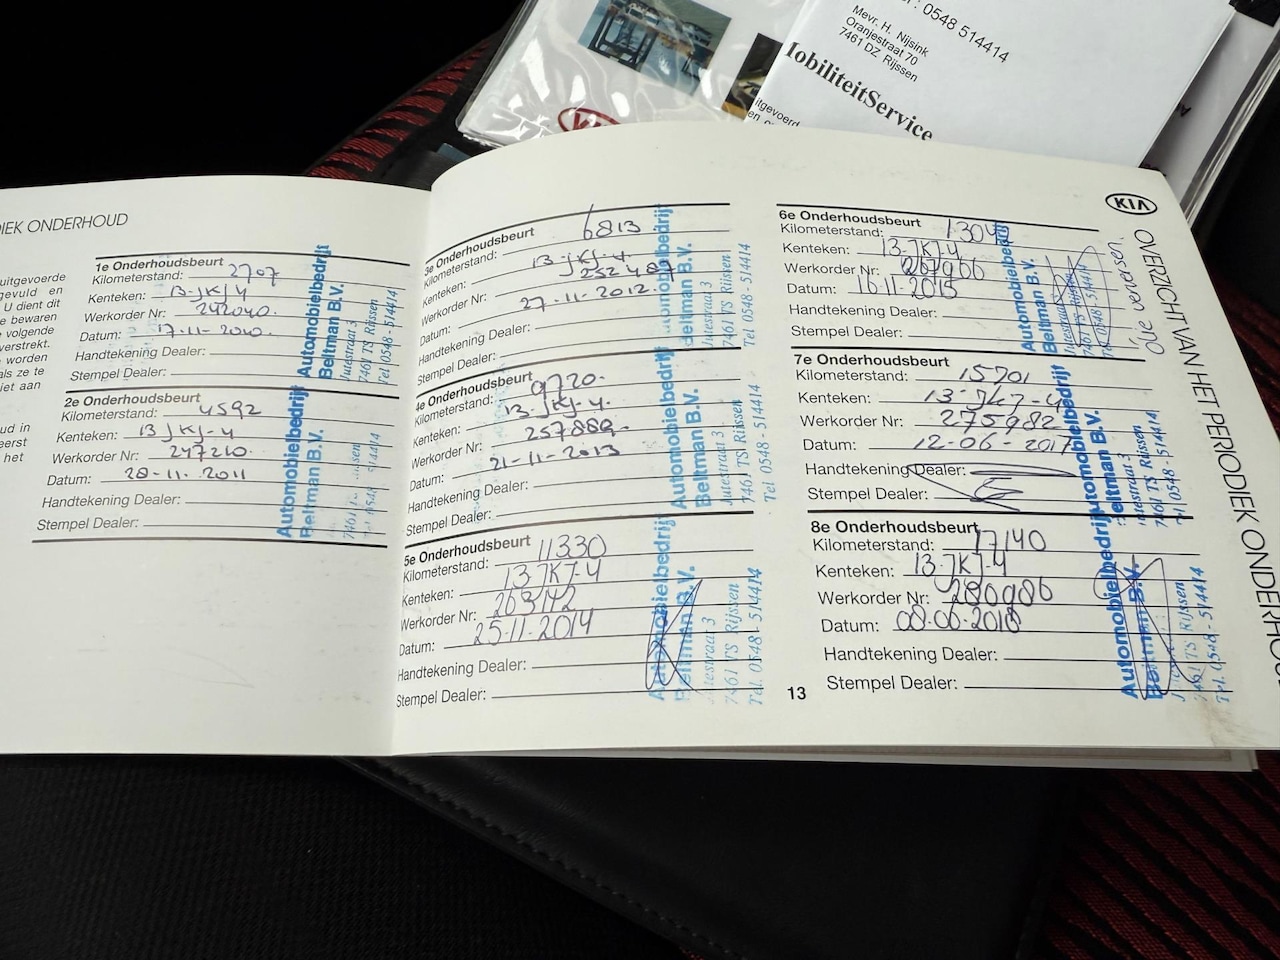 : 0548 514414
Mevr. H. Nijsink
Oranjestraat 70
7461 DZ. Rijssen
MobiliteitService
itgevoerd
DIEK ONDERHOUD
uitgevoerde
gevuld en
U dient dit
te bewaren
volgende
verstrekt.
worden
als ze te
iet aan
ud in
eerst
het
1e Onderhoudsbeurt
Kilometerstand: 2707
Kenteken: 13-JKJ-4
Werkorder Nr: 242040.
Datum: 17-11-2010.
Handtekening Dealer:
Stempel Dealer:
Automobielbedrijf
Beltman B.V.
Jutestraat 3
7461 TS Rijssen
Tel 0548 - 514414
2e Onderhoudsbeurt
Kilometerstand: 4592
Kenteken: 13 JKJ-4
Werkorder Nr: 247210.
Datum: 28-11-2011
Handtekening Dealer:
Stempel Dealer:
Automobielbedrijf
Beltman B.V.
3e Onderhoudsbeurt
Kilometerstand: 6813
Kenteken: 13-JKJ-4.
Werkorder Nr: 252487
Datum: 27-11-2012.
Handtekening Dealer:
Stempel Dealer:
Automobielbedrijf
Beltman B.V.
Jutestraat 3
7461 TS Rijssen
Tel 0548 - 514414
4e Onderhoudsbeurt
Kilometerstand: 9720.
Kenteken: 13-JKJ-4.
Werkorder Nr: 257889.
Datum: 21-11-2013
Handtekening Dealer:
Stempel Dealer:
Automobielbedrijf
Beltman B.V.
Jutestraat 3
7461 TS Rijssen
Tel. 0548 - 514414
5e Onderhoudsbeurt
Kilometerstand: 11330
Kenteken: 13-JKJ-4
Werkorder Nr: 263142
Datum: 25-11-2014
Handtekening Dealer:
Stempel Dealer:
Automobielbedrijf
Beltman B.V.
Jutestraat 3
7461 TS Rijssen
Tel. 0548 - 514414
13
KIA
OVERZICHT VAN HET PERIODIEK ONDERHOUD
6e Onderhoudsbeurt
Kilometerstand: 1304
Kenteken: 13-JKJ-4
Werkorder Nr: 267966
Datum: 16-11-2015
Handtekening Dealer:
Stempel Dealer:
Automobielbedrijf
Beltman B.V.
olie verversen
7e Onderhoudsbeurt
Kilometerstand: 15701
Kenteken: 13-JKJ-4
Werkorder Nr: 275982
Datum: 12-06-2017
Handtekening Dealer:
Stempel Dealer:
Automobielbedrijf
Beltman B.V.
Jutestraat 3
7461 TS Rijssen
Tel 0548 - 514414
8e Onderhoudsbeurt
Kilometerstand: 17140
Kenteken: 13-JKJ-4
Werkorder Nr: 280986
Datum: 08-06-2018
Handtekening Dealer:
Stempel Dealer:
Automobielbedrijf
Beltman B.V.
7461 TS Rijssen
Tel. 0548 - 514414